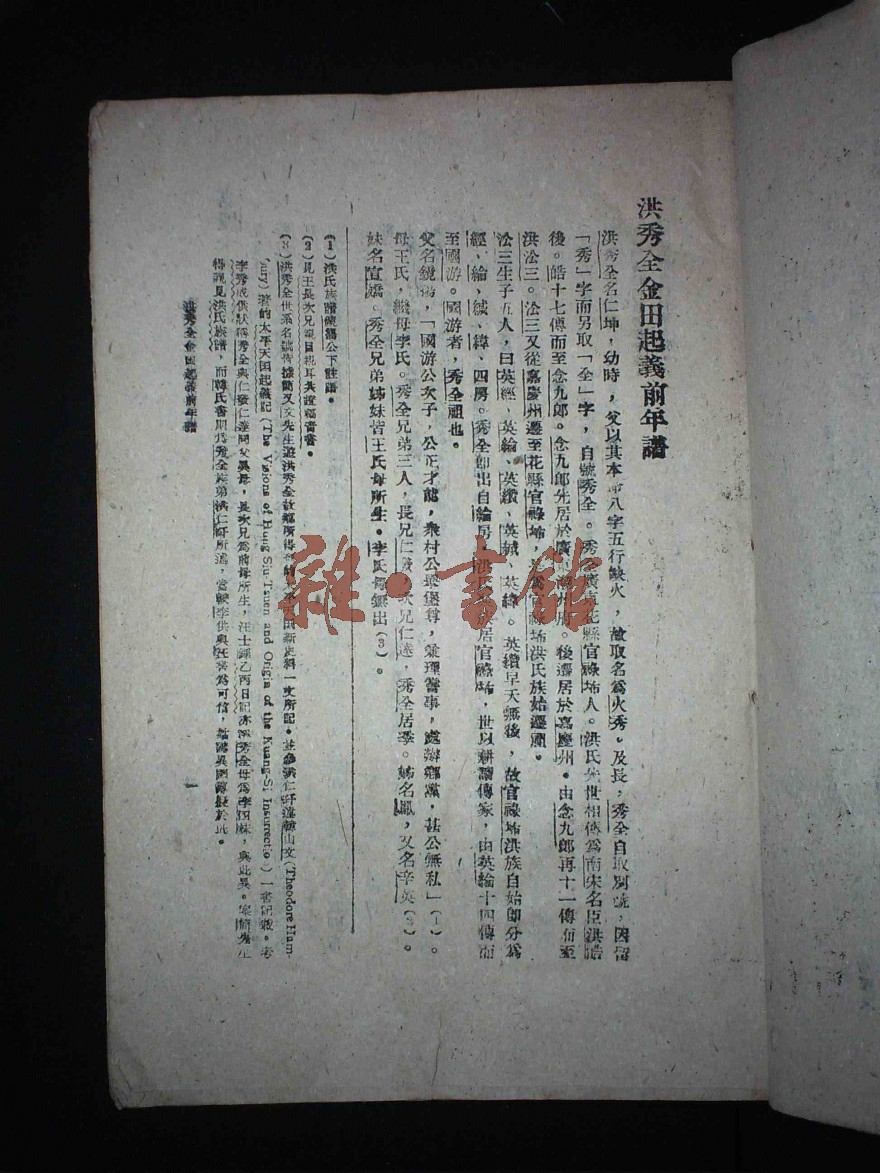 洪秀全金田起義前年譜
洪秀全名仁坤，幼時，父以其本命八字五行缺火，故取名爲火秀。及長，秀全自取別號，因留
「秀」字而另取「全」字，自號秀全。秀全廣東花縣官祿㘵人。洪氏先世相傳爲南宋名臣洪皓
後。皓十七傳而至念九郎。念九郎先居於廣東潮州府。後遷居於嘉慶州。由念九郎再十一傳而至
洪㳂三。㳂三又從嘉慶州遷至花縣官祿㘵，爲官祿㘵洪氏族始遷祖。
㳂三生子五人，曰英經、英綸、英纘、英緘、英緯。英纘早夭無後，故官祿㘵洪族自始即分爲
經、綸、緘、緯、四房。秀全即出自綸房。洪氏族居官祿㘵，世以耕讀傳家，由英綸十四傳而
至國游。國游者，秀全祖也。
父名鏡揚，「國游公次子，公正才能，衆村公舉堡尊，兼理嘗事，處辦鄉黨，甚公無私」（1）。
母王氏，繼母李氏。秀全兄弟三人，長兄仁發，次兄仁達，秀全居季。姊名鳳，又名辛英（2）。
妹名宣嬌。秀全兄弟姊妹皆王氏母所生。李氏母無出（3）。
（1）洪氏族譜鏡揚公下註語。
（2）見王長次兄親目親耳共證福音書。
（3）洪秀全世系名號皆據簡又文先生遊洪秀全故鄉所得到的太平天國新史料一文所記。並參洪仁玕述韓山文(Theodore Ham-
berg）著的太平天國起義記（The Visions of Hung-Siu-Tsuen and Origin of the Kuang-Si Insurrectio ）一書記載。考
李秀成供狀稱秀全與仁發仁達同父異母，長次兄爲前母所生，汪士鐸乙丙日記亦謂秀全母爲李四妹，與此異。案簡先生
得親見洪氏族譜，而韓氏書則爲秀全族弟洪仁玕所述，當較李供與汪書爲可信，茲附異聞辨疑於此。
洪秀全金田起義前年譜
一
雜·書館